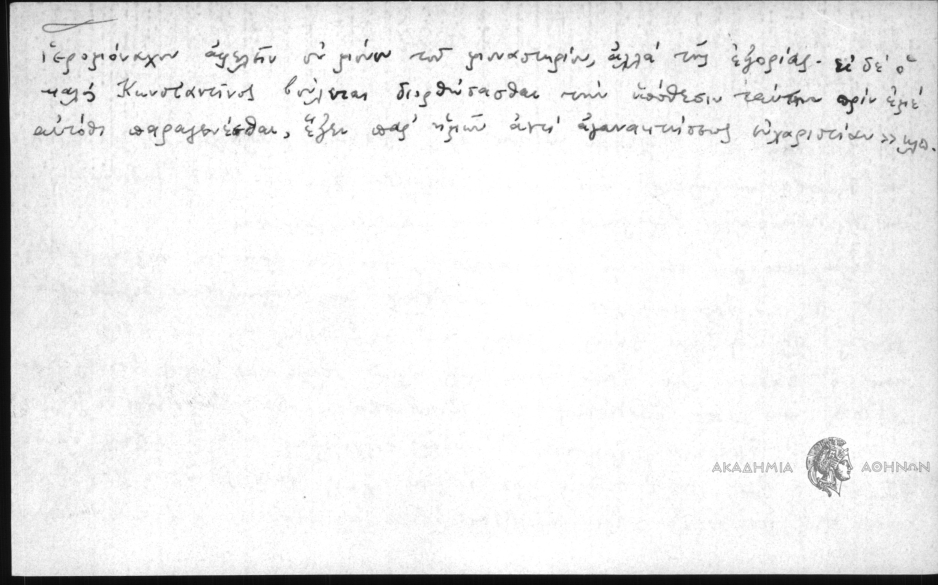 ἱερομόναχον ἀπελθεῖν οὐ μόνον τοῦ μοναστηρίου, ἀλλά τῆς ἐξορίας. εἰ δέ ὁ
καλός Κωνσταντῖνος βούλεται διορθώσασθαι τήν ὑπόθεσιν ταύτην πρίν ἐμέ
αὐτόθι παραγενέσθαι, ἕξει παρ' ἡμῶν ἀντί ἀγανακτήσεως εὐχαριστίαν» κλπ.
ΑΚΑΔΗΜΙΑ ΑΘΗΝΩΝ